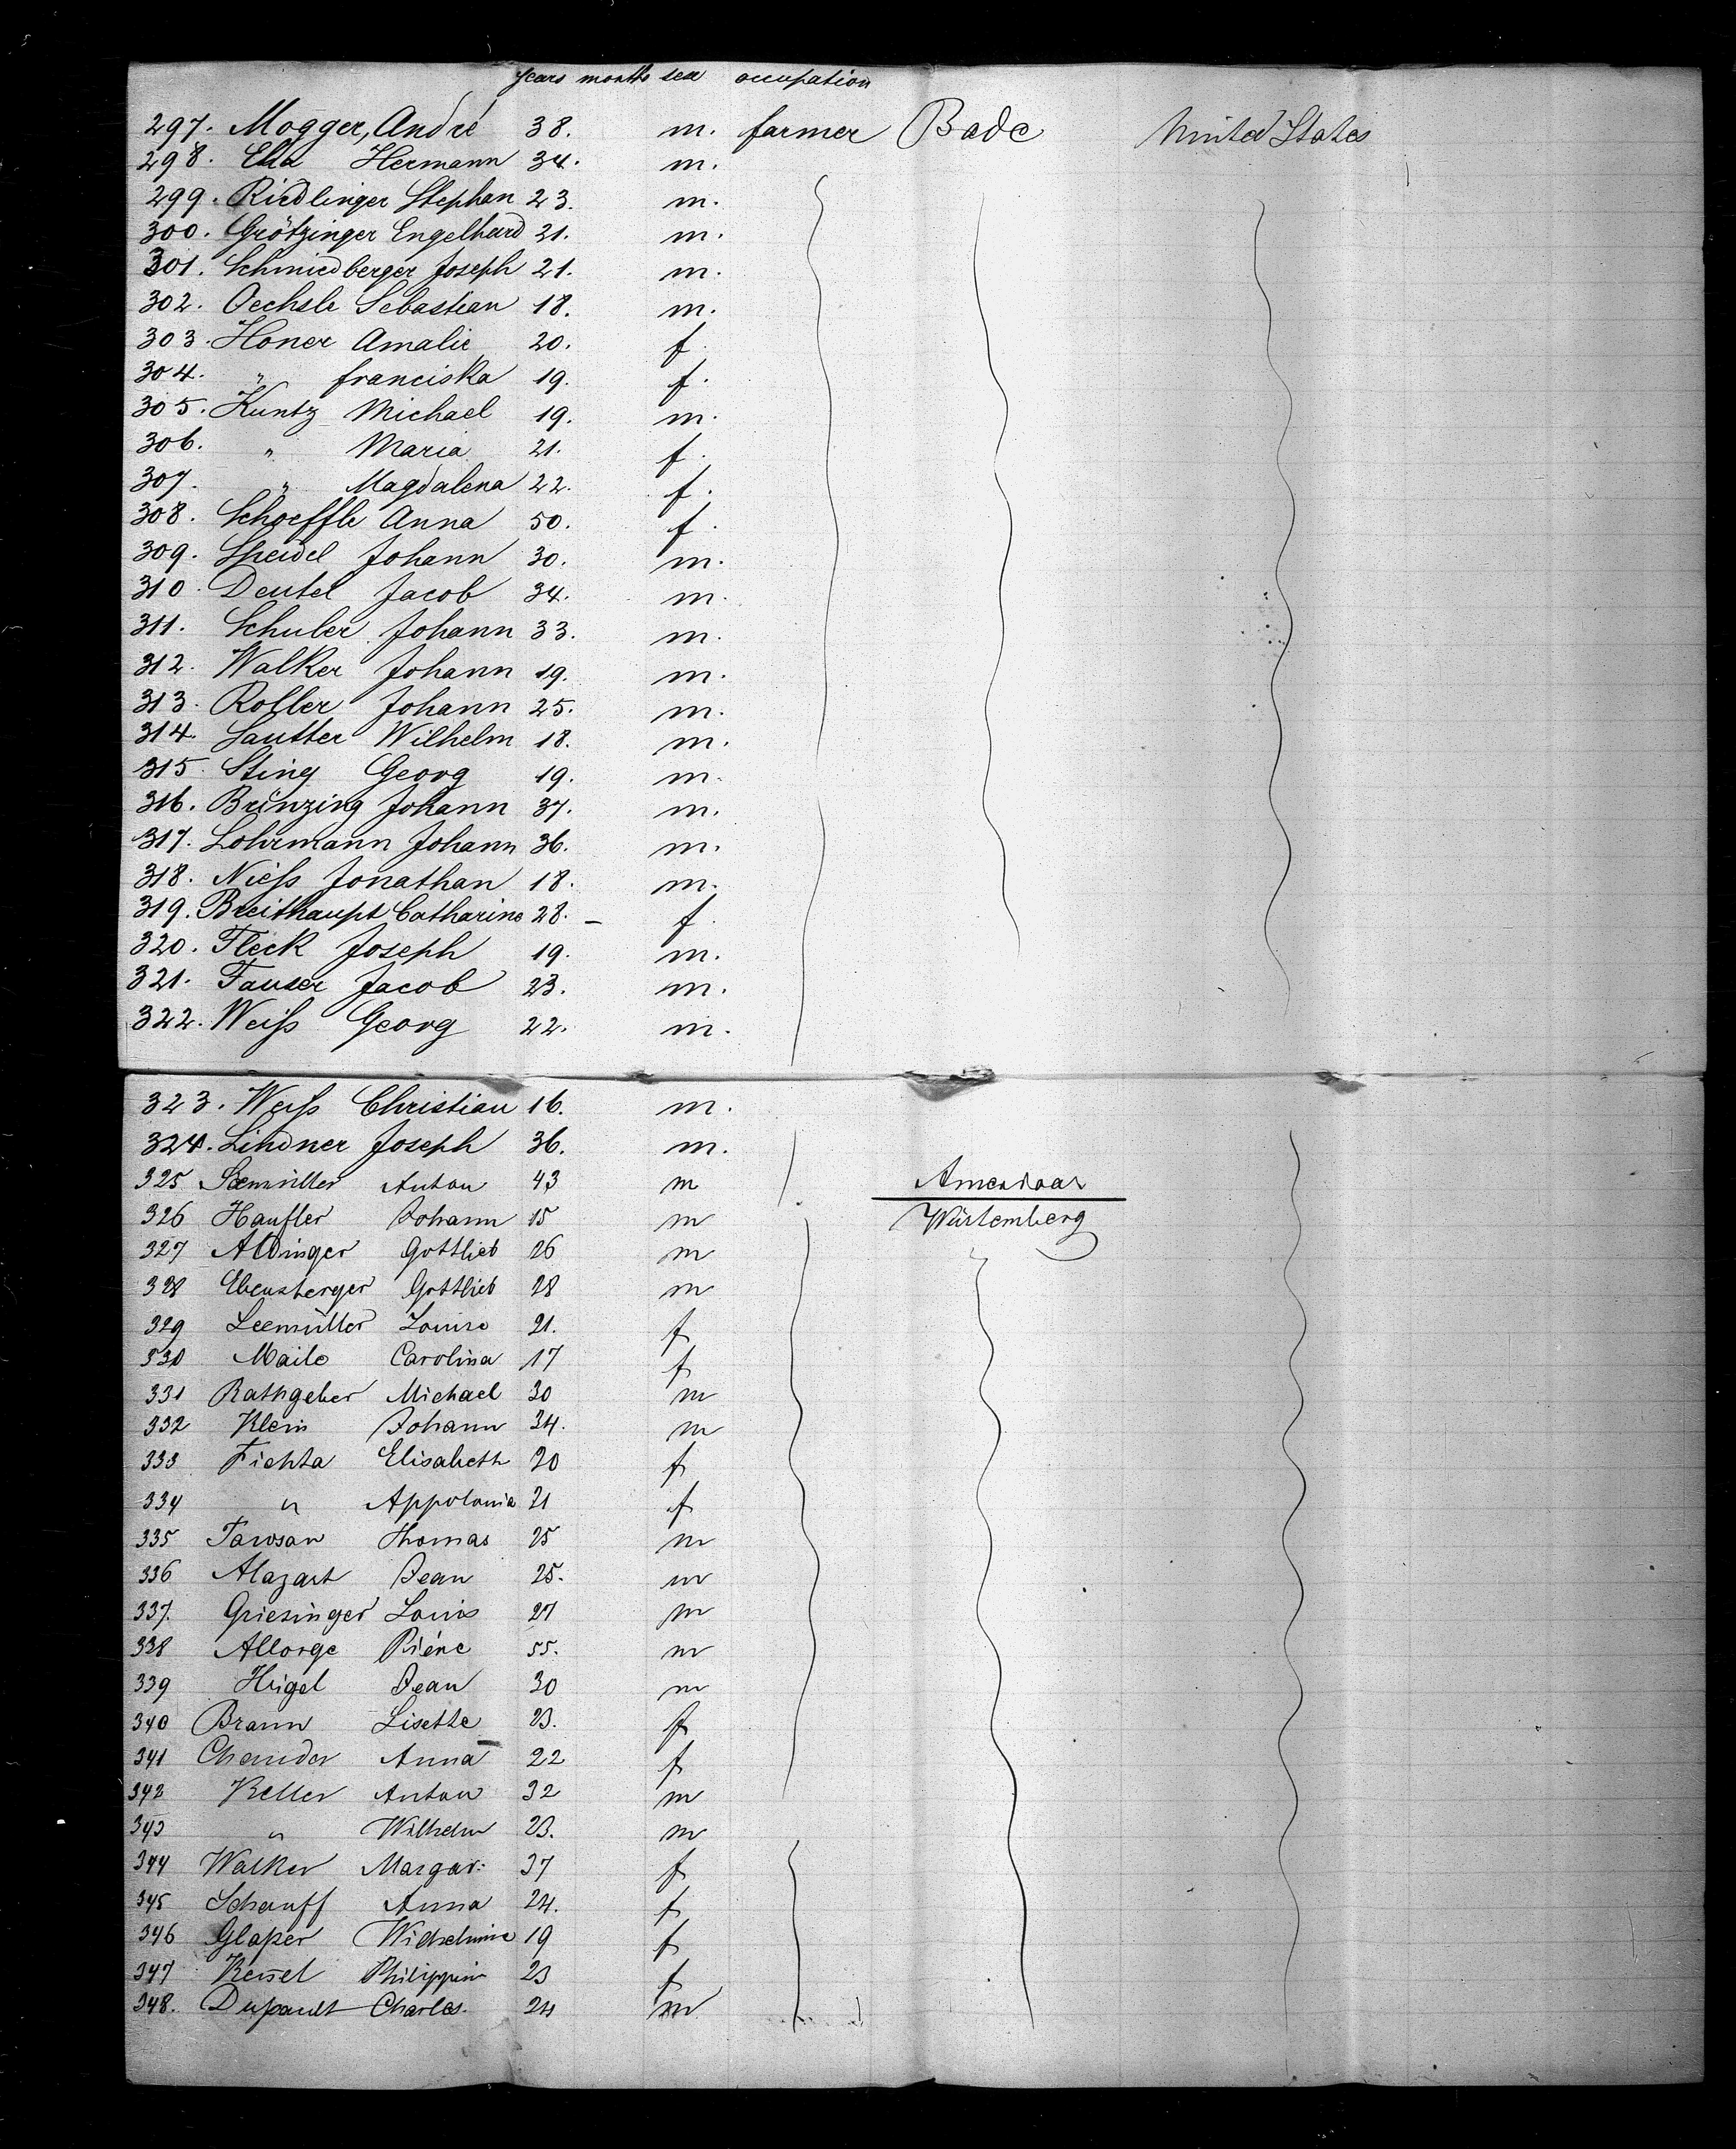 years months sex occupation
297. Mogger, André 38. m. farmer Bade United States
298. Hermann 34. m.
299. Riedlinger Stephan 23. m.
300. Grötzinger Engelhard 21. m.
301. Schmiedberger Joseph 21. m.
302. Oechsle Sebastian 18. m.
303. Honer Amalie 20. f.
304. " franciska 19. f.
305. Kuntz Michael 19. m.
306. " Maria 21. f.
307. " Magdalena 22. f.
308. Schoeffle Anna 50. f.
309. Speidel Johann 30. m.
310. Deutel Jacob 34. m.
311. Schuler Johann 33. m.
312. Walker Johann 19. m.
313. Roller Johann 25. m.
314. Sautter Wilhelm 18. m.
315. Sting Georg 19. m.
316. Brinzing Johann 37. m.
317. Lohrmann Johann 36. m.
318. Nieß Jonathan 18. m.
319. Breithaupt Catharine 28. – f.
320. Fleck Joseph 19. m.
321. Fauser Jacob 23. m.
322. Weiß Georg 22. m.
323. Weiß Christian 16. m.
324. Lindner Joseph 36. m.
325 Seemüller Anton 43 m
326 Haufler Johann 15 m Würtemberg
327 Aldinger Gottlieb 26 m
328 Ebensberger Gottlieb 28 m
329 Seemüller Louise 21. f
330 Maile Carolina 17 f
331 Rathgeber Michael 30 m
332 Klein Johann 34. m
333 Fichta Elisabeth 20 f
334 " Appolonia 21 f
335 Thomas 25 m
336 Alazart Jean 25. m
337. Griesinger Louis 27 m
338 Allorge Piére 55. m
339 Heigel Jean 30 m
340 Braun Lisette 23. f
341 Anna 22 f
342 Keller Anton 32 m
343 " Wilhelm 23. m
344 Walker Margar: 37 f
345 Schauff Anna 24. f
346 Glaßer Wilhelmine 19 f
347 Kessel Philippin 23 f
348. Dupault Charles. 24 m